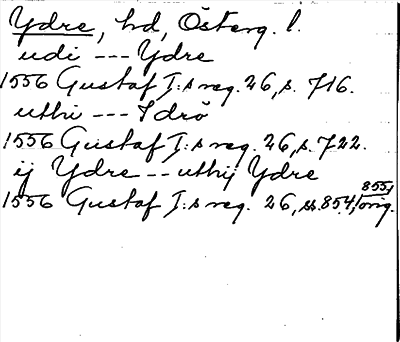 Ydre, hd, Österg. l.
udi --- Ydre
1556 Gustaf I:s reg. 26, s. 716.
uthi --- Idrö
1556 Gustaf I:s reg. 26, s. 722.
ij Ydre -- uthij Ydre
1556 Gustaf I:s reg. 26, ss. 854, 855, orig.